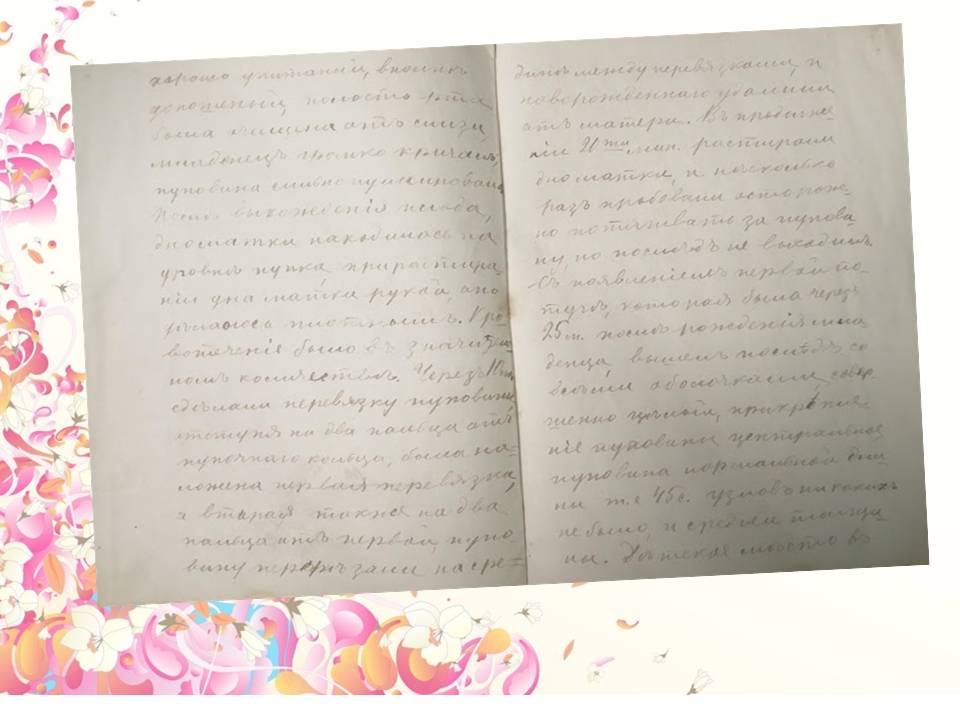 хорошо упитаный, вполнѣ
доношеный, полость рта
была очищена отъ слизи,
младенецъ громко кричалъ,
пуповина сильно пульсировала
Послѣ выхожденія плода,
дно матки находилось на
уровнѣ пупка при растира
ніи дна матки рукой, оно
дѣлалось плотнымъ. Кро
вотеченія было въ значитель
номъ количествѣ. Черезъ 10 мин
сдѣлали перевязку пуповины
отступя на два пальца отъ
пупочнаго кольца, была на=
ложена первая перевязка,
а вторая также на два
пальца отъ первой, пупо
вину перерѣзали на сре=
динѣ между перевязками, и
новорожденнаго удалили
отъ матери. Въ продолже
ніи 20ти мин. растирали
дно матки, и нѣсколько
разъ пробовали осторож-
но потягивать за пупови
ну, но послѣдъ не выходилъ.
Съ появленіемъ первой по-
туги, которая была черезъ
25 м. послѣ рожденія мла
денца вышелъ послѣдъ со
всѣми оболочками, совер-
шенно цѣлый, прикрѣпле-
ніе пуповины центральное
пуповина нормальной дли
ны т.е 45 с. узловъ никакихъ
не было, и средней толщи
ны. Дѣтское мѣсто въ